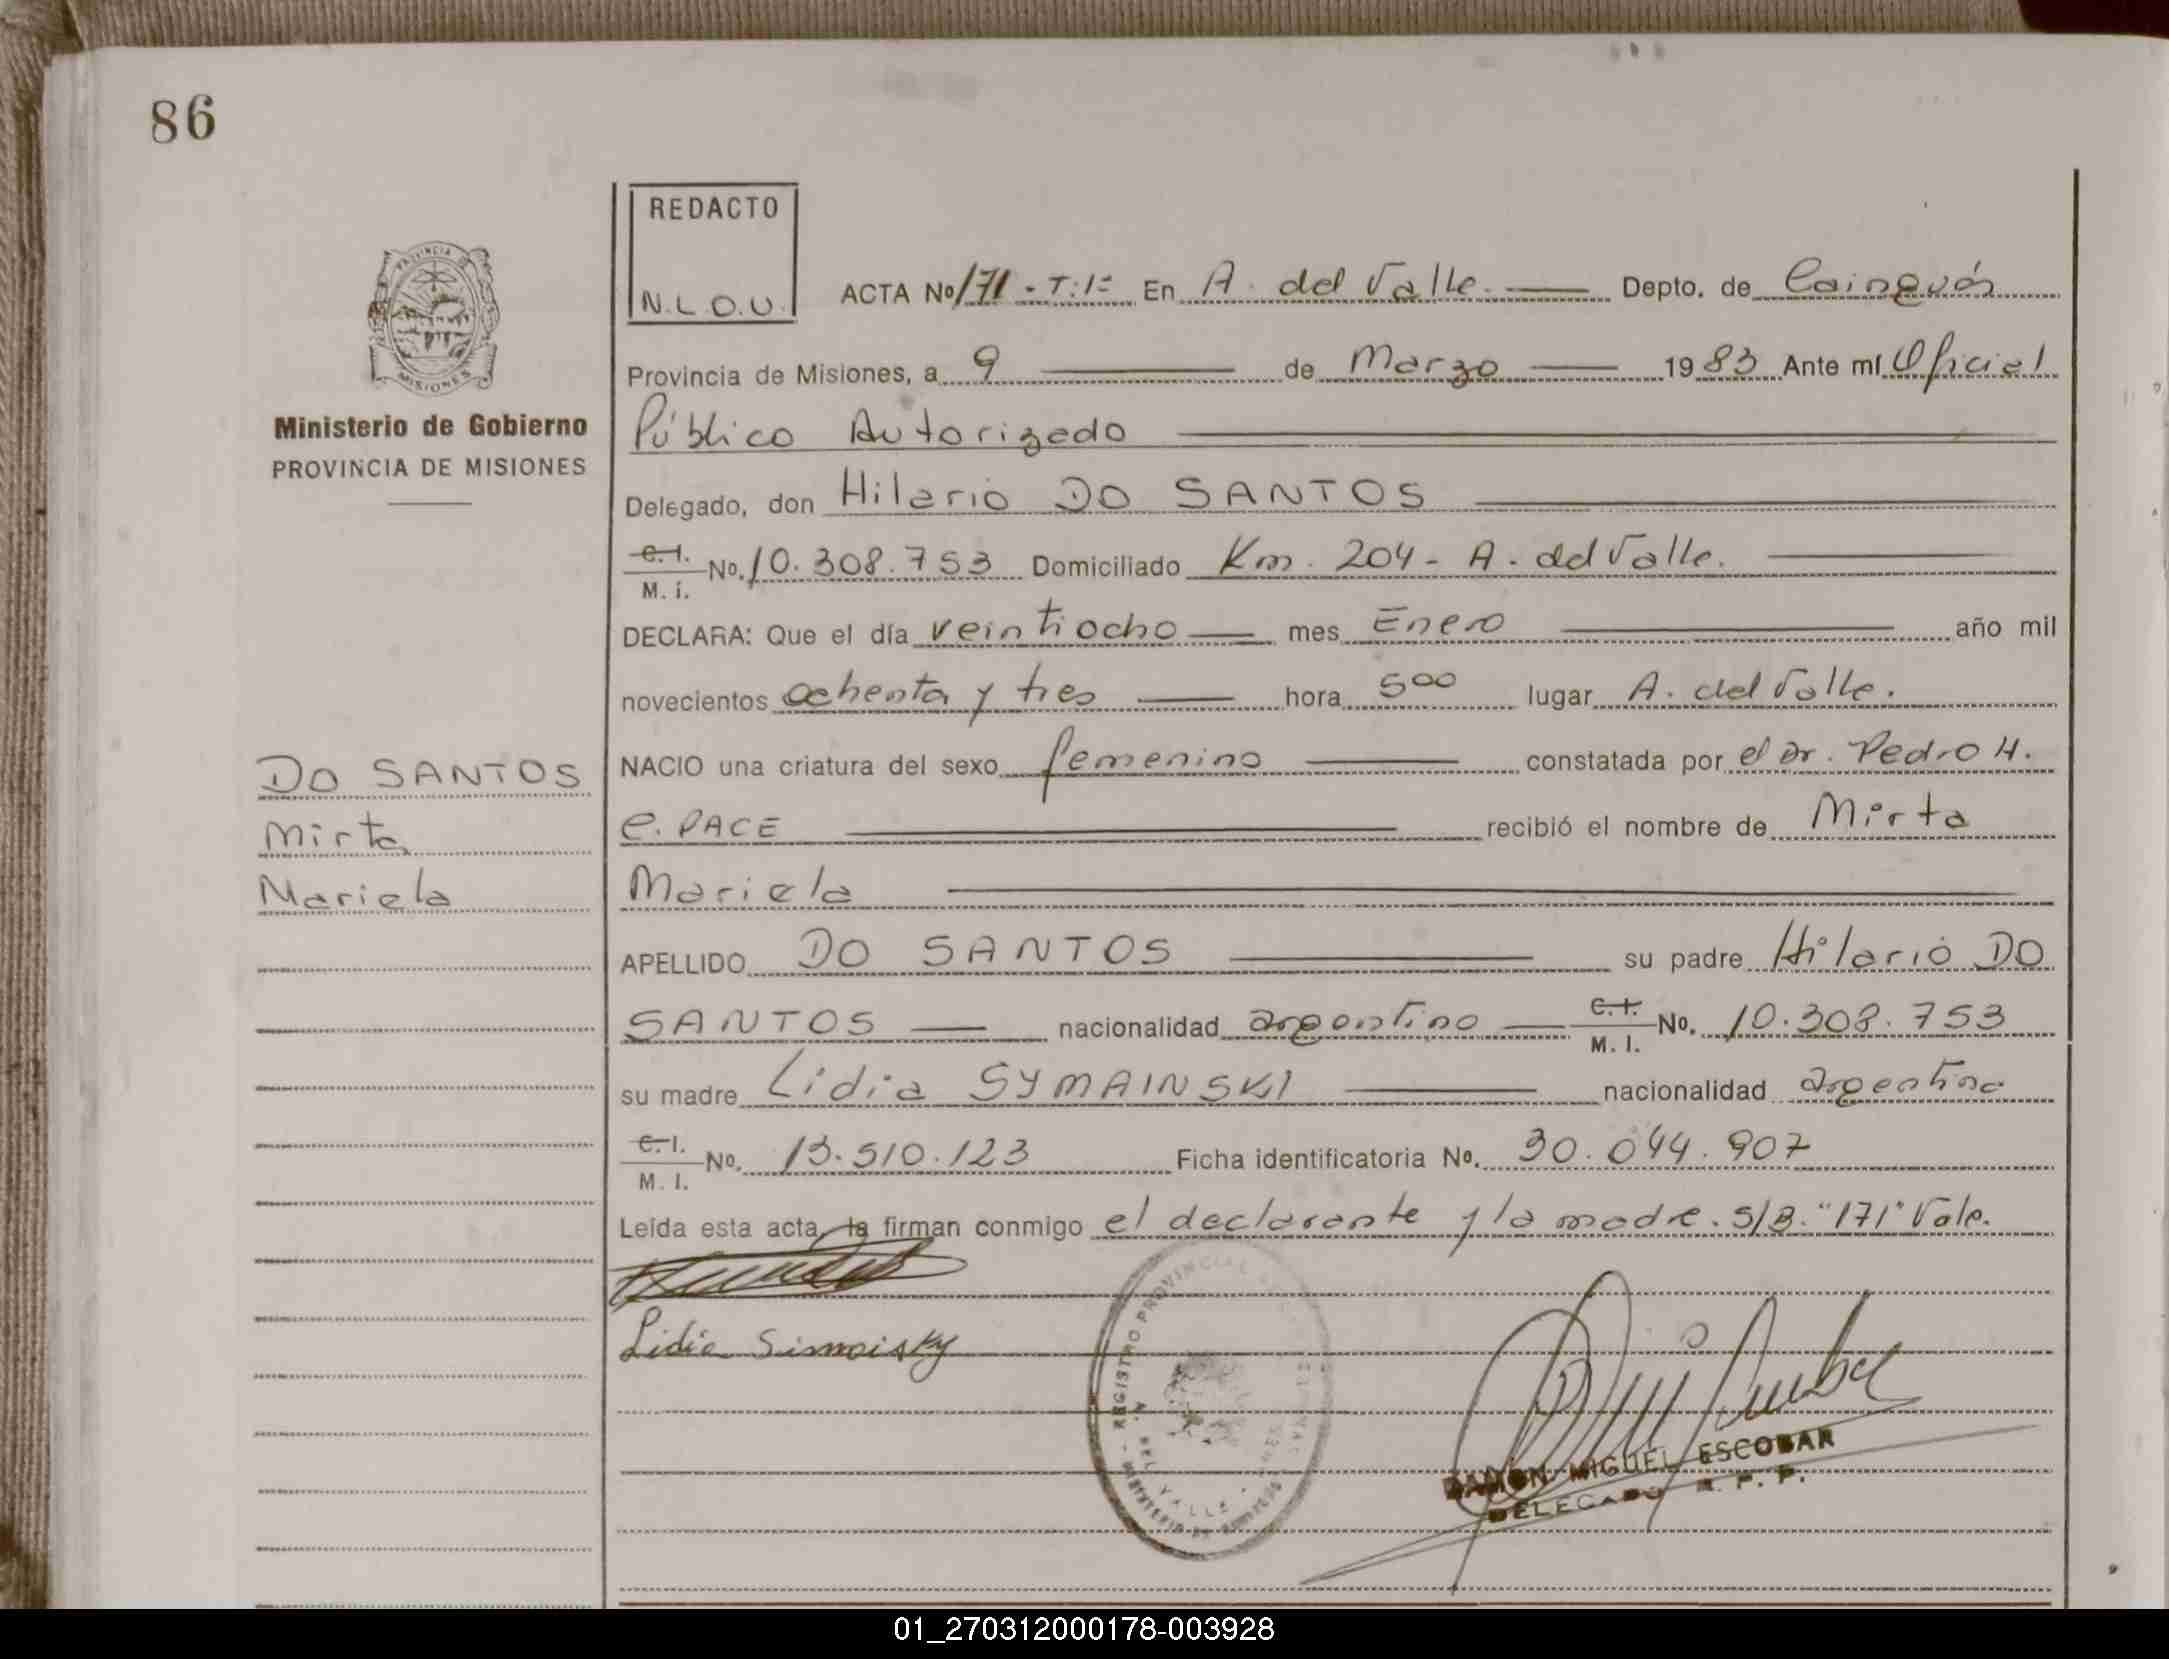 86
REDACTO
N.L.O.U.
PROVINCIA DE
MISIONES
Ministerio de Gobierno
PROVINCIA DE MISIONES
ACTA No 171 - T:1º En A. del Valle. Depto. de Cainguás
Provincia de Misiones, a 9 de Marzo 1983 Ante mí Oficial
Público Autorizado
Delegado, don Hilario DO SANTOS
C.I.
M. I. No. 10.308.753 Domiciliado Km. 204 - A. del Valle.
DECLARA: Que el día veintiocho mes Enero año mil
novecientos ochenta y tres hora 5 00 lugar A. del Valle.
NACIO una criatura del sexo femenino constatada por el Dr. Pedro H.
C. PACE recibió el nombre de Mirta
Mariela
APELLIDO DO SANTOS su padre Hilario DO
SANTOS nacionalidad argentino C.I. M. I. No. 10.308.753
su madre Lidia SYMAINSKI nacionalidad argentina
C.I.
M. I. No. 13.510.123 Ficha identificatoria No. 30.044.907
Leída esta acta, la firman conmigo el declarante y la madre. S/B. "171" Vale.
Lidia Simoisky
DO SANTOS
Mirta
Mariela
REGISTRO PROVINCIAL
A. DEL VALLE
RAMON MIGUEL ESCOBAR
DELEGADO R. P. P.
01_270312000178-003928